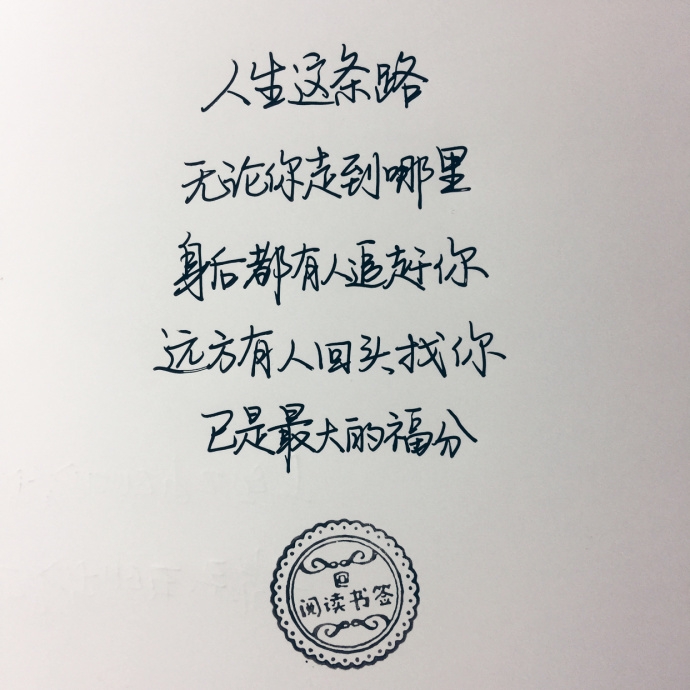 人生这条路
无论你走到哪里
身后都有人追赶你
远方有人回头找你
已是最大的福分
@
阅读书签